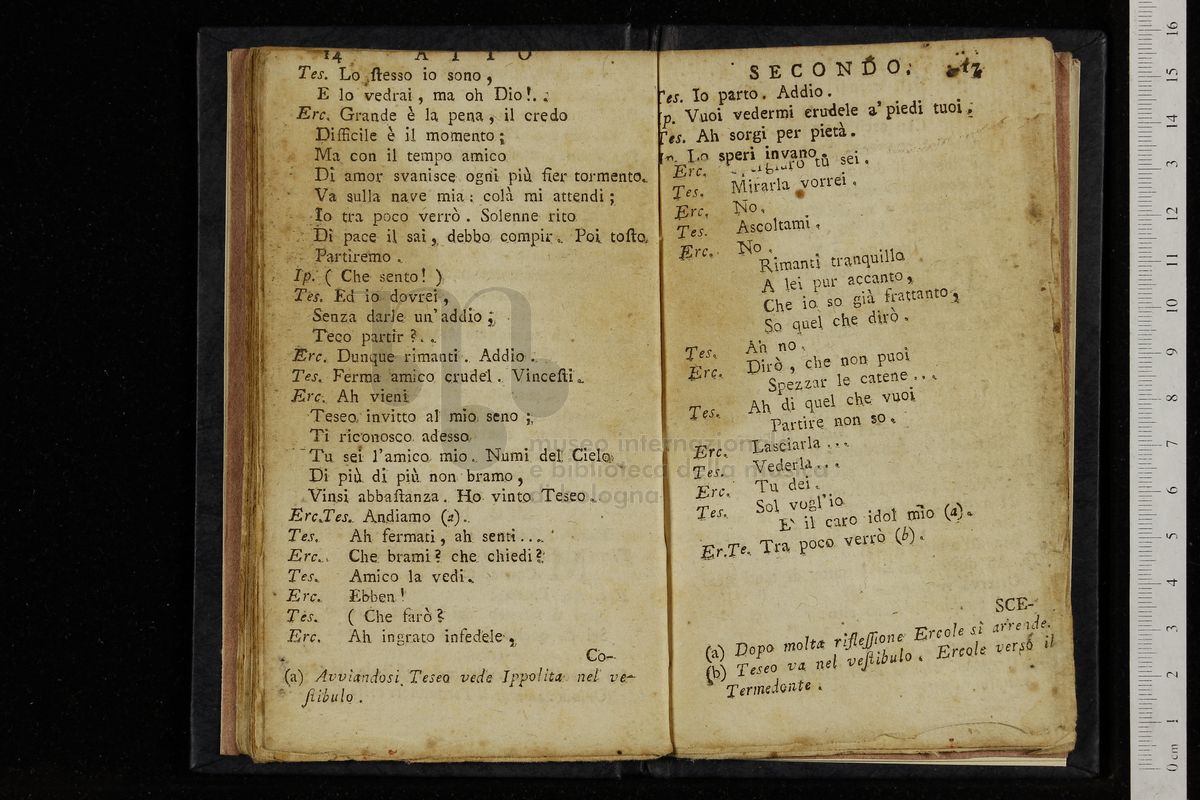 14 ATTO
Tes. Lo ſtesso io sono,
E lo vedrai, ma oh Dio!..
Erc. Grande è la pena, il credo
Difficile è il momento;
Ma con il tempo amico
Di amor svanisce ogni più fier tormento.
Va sulla nave mia: colà mi attendi;
Io tra poco verrò. Solenne rito
Di pace il sai, debbo compir. Poi toſto
Partiremo.
Ip. (Che sento!)
Tes. Ed io dovrei,
Senza darle un'addio;
Teco partir?..
Erc. Dunque rimanti. Addio.
Tes. Ferma amico crudel. Vinceſti.
Erc. Ah vieni
Teseo invitto al mio seno;
Ti riconosco adesso
Tu sei l'amico mio. Numi del Cielo
Di più di più non bramo,
Vinsi abbaſtanza. Ho vinto Teseo.
Erc.Tes. Andiamo (a).
Tes. Ah fermati, ah senti....
Erc. Che brami? che chiedi?
Tes. Amico la vedi.
Erc. Ebben!
Tes. (Che farò?
Erc. Ah ingrato infedele,
Co-
(a) Avviandosi Teseo vede Ippolita nel ve-
ſtibulo.
SECONDO.
Tes. Io parto. Addio.
Ip. Vuoi vedermi crudele a' piedi tuoi.
Tes. Ah sorgi per pietà.
Ip. Lo speri invano.
Erc. tu sei.
Tes. Mirarla vorrei.
Erc. No.
Tes. Ascoltami.
Erc. No.
Rimanti tranquillo
A lei pur accanto,
Che io so già frattanto,
So quel che dirò.
Tes. Ah no.
Erc. Dirò, che non puoi
Spezzar le catene...
Tes. Ah di quel che vuoi
Partire non so.
Erc. Lasciarla...
Tes. Vederla...
Erc. Tu dei.
Tes. Sol vogl'io
E' il caro idol mio (a).
Er.Te. Tra poco verrò (b).
SCE-
(a) Dopo molta rifleſſione Ercole si arrende.
(b) Teseo va nel veſtibulo. Ercole verso il
Termedonte.
museo internazionale
e biblioteca della musica
di bologna
0 cm 1 2 3 4 5 6 7 8 9 10 11 12 13 14 15 16